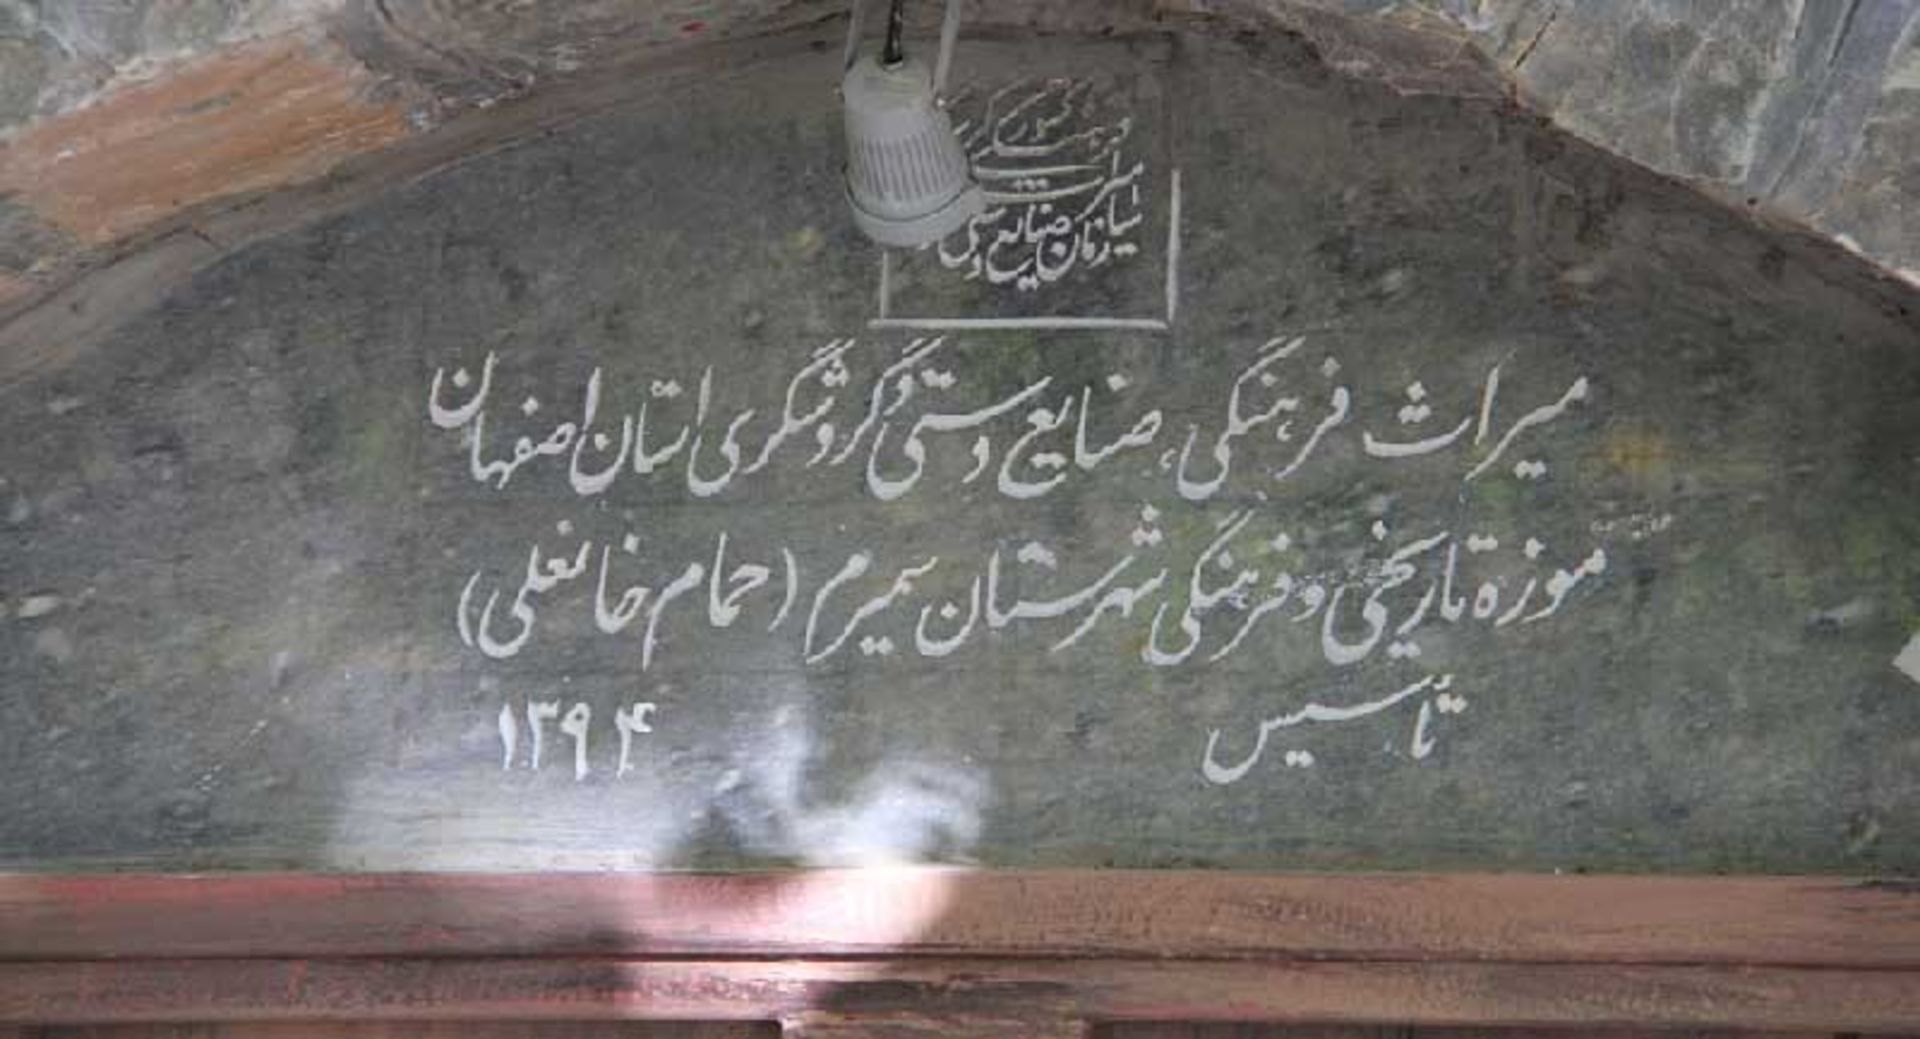 سازمان میراث فرهنگی
صنایع دستی و گردشگری
میراث فرهنگی، صنایع دستی و گردشگری استان اصفهان
موزه تاریخی و فرهنگی شهرستان سمیرم (حمام خانعلی)
تأسیس ۱۳۹۴